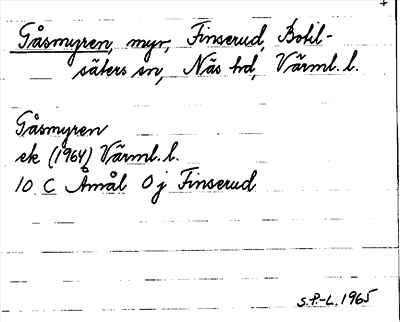 Gåsmyren, myr, Finserud, Botil-
säters sn, Näs hd, Värml. l.
Gåsmyren
ek (1964) Värml. l.
10 C Åmål 0 j Finserud
S.P-L. 1965